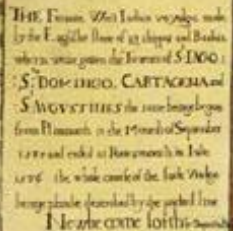 THE Famous West Indian voyadge made
by the Englishe fleete of 23 shippes and Barkes
wherin weare gotten the Townes of S.t IAGO:
: S.to DOMINGO, CARTAGENA and
S. AVGVSTINES the same beinge begon
from Plimmouth in the Moneth of September
1585 and ended at Portesmouth in Iulie
1586 the whole course of the saide Viadge
beinge plainlie described by the pricked line
Newlie come forth